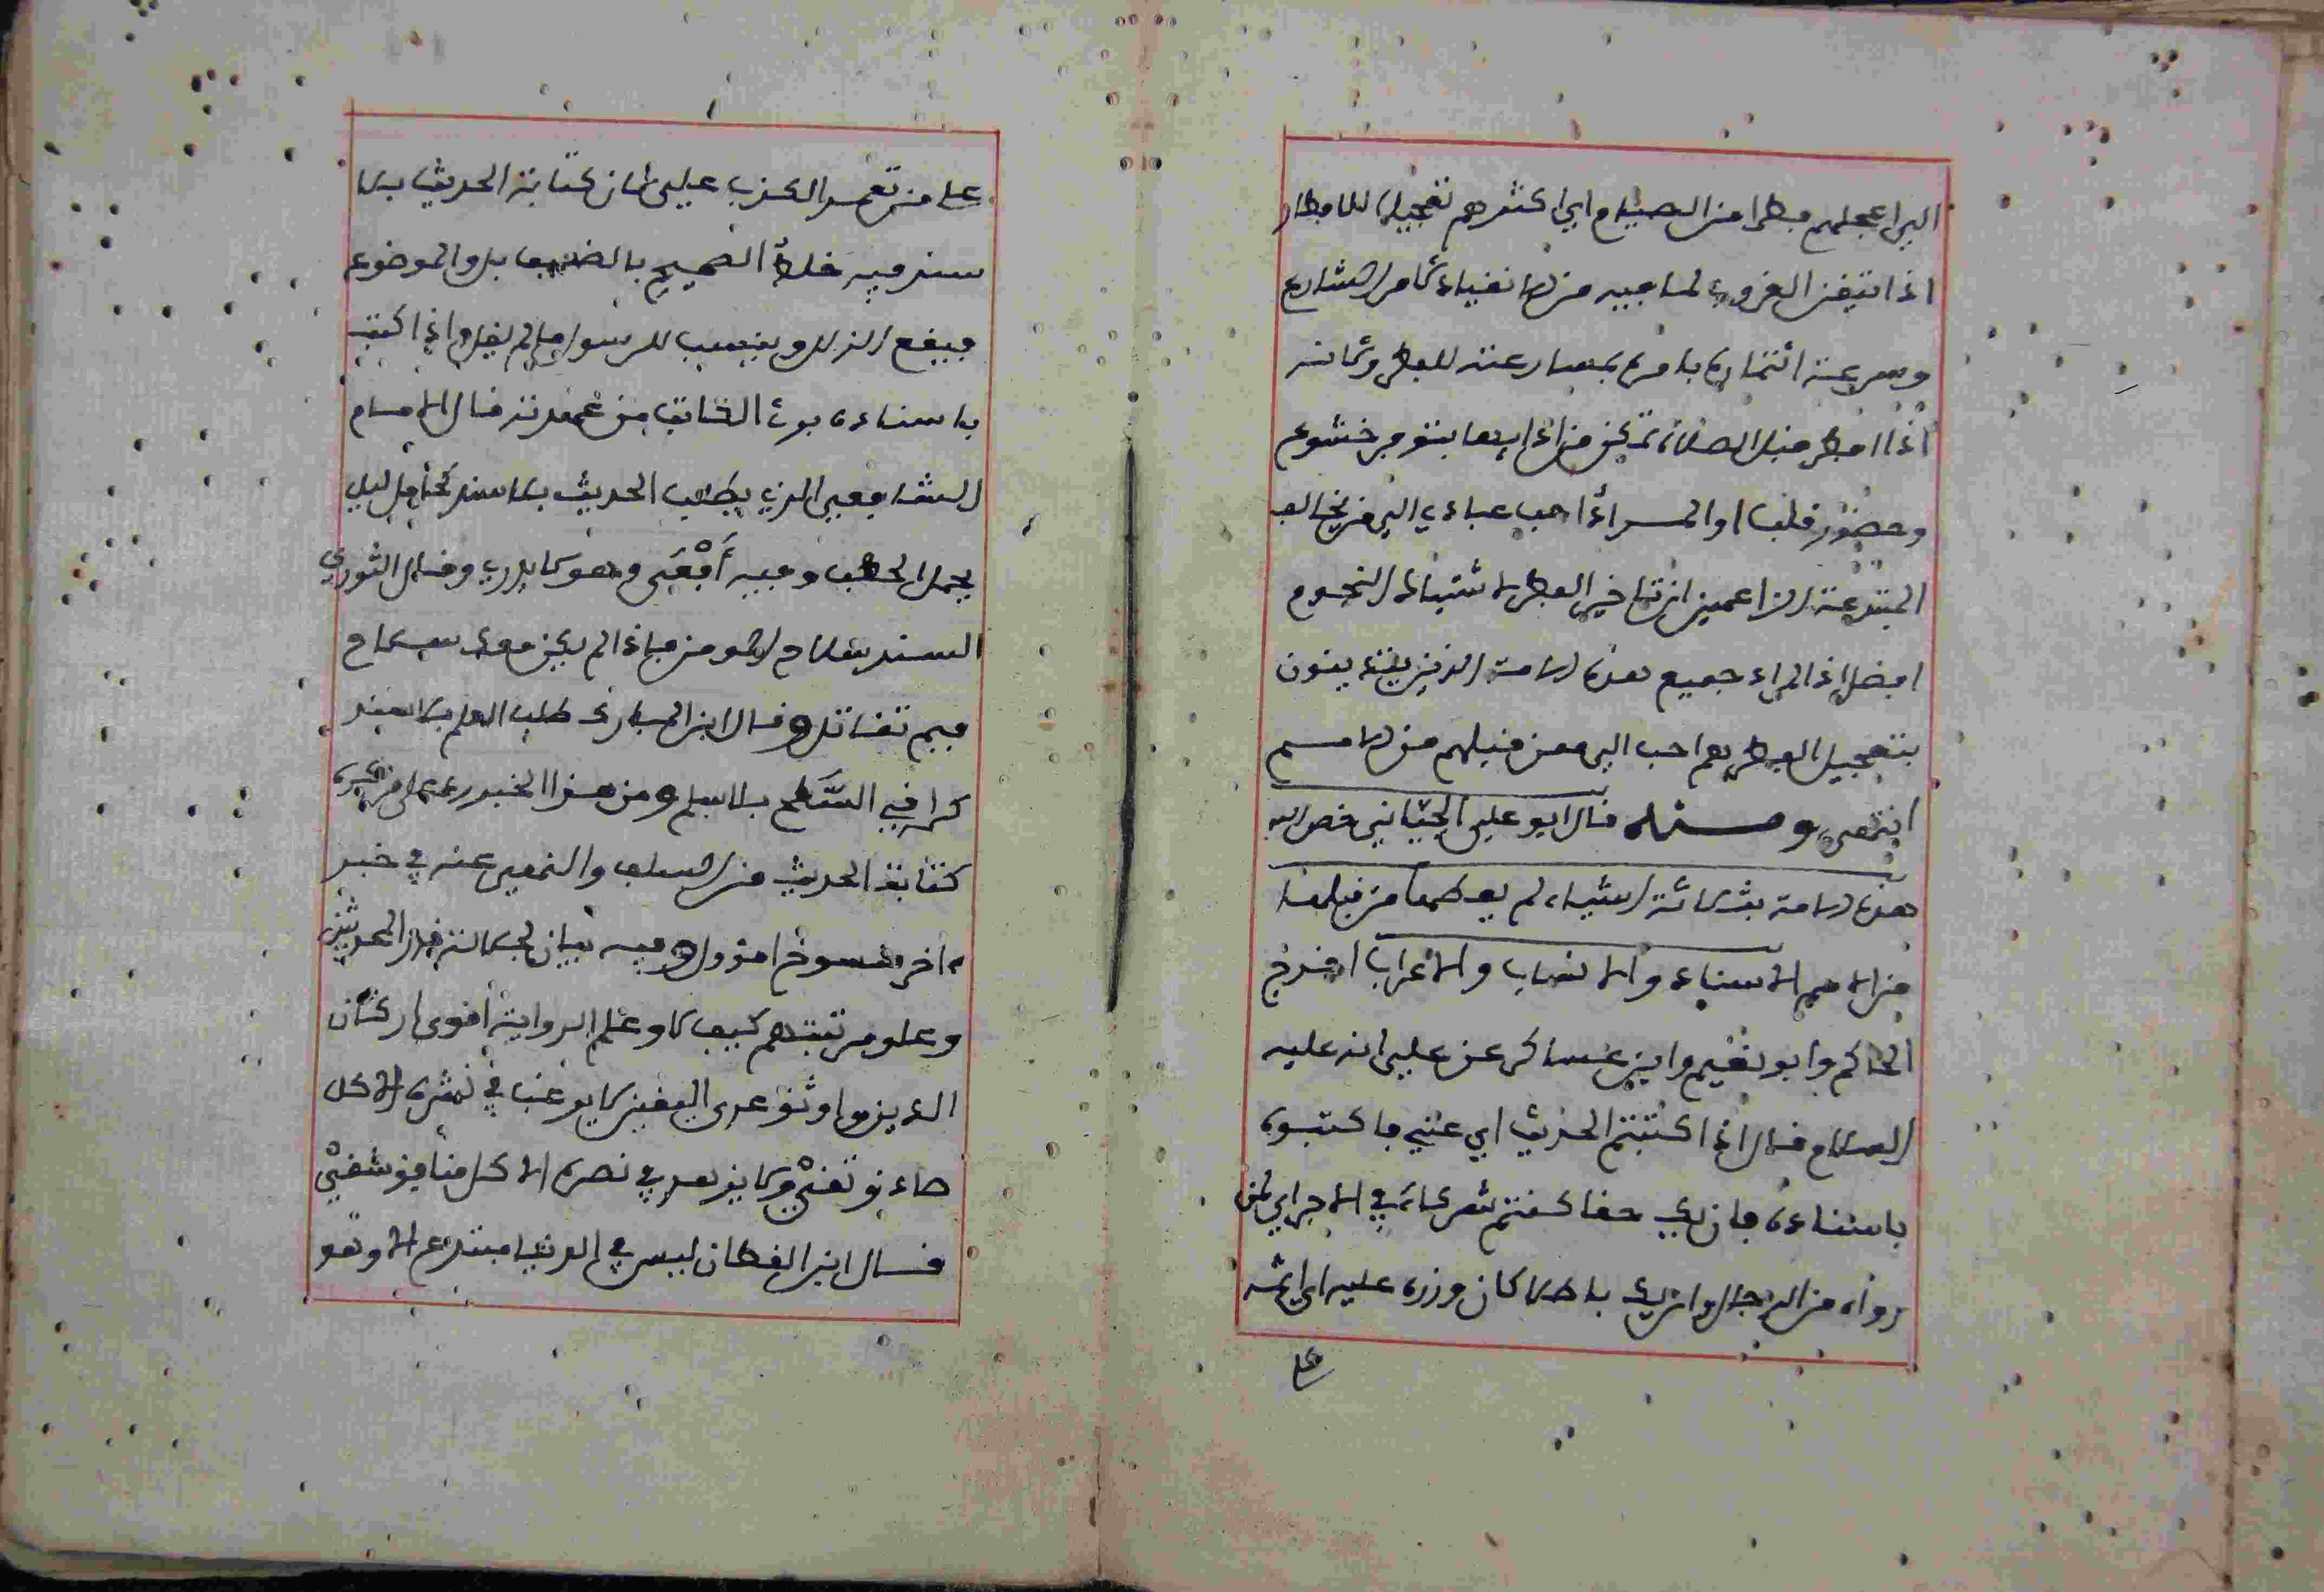 الي اعجلهم فطرا من الصيام اي اكثرهم تعجيلا للافطار
اذا تيقن الغروب لما فيه من الانقياد لامر الشارع
وسرعة ائتماره بامره بمسارعته للفطر ولانه
اذا افطر قبل الصلاة تمكن من ادايها بتوفر خشوع
وحضور قلب او المراد احب عبادي الي من يخالف
المبتدعة الزاعمين ان تاخير الفطر لاشتباك النجوم
افضل اذ المراد جميع هذه الامة الذين يتدينون
بتعجيل الفطر فهم احب الي ممن قبلهم من الامم
انتهى ومنه قال ابو علي الجياني خص الله
هذه الامة بثلاثة اشياء لم يعطها من قبلها
من الامم الاسناد والانساب والاعراب اخرج
الحاكم وابو نعيم وابن عساكر عن علي انه عليه
السلام قال اذا كتبتم الحديث اي عني فاكتبوه
باسناده فان يك حقا كنتم شركاء في الاجر اي لمن
رواه من الرجال وان يك باطلا كان وزره عليه اي اثمه
على من تعمد الكذب علي لان كتابة الحديث بلا
سند فيه خلط الصحيح بالضعيف بل والموضوع
فيقع الزلل وينسب للرسول ما لم يقل واذا كتب
باسناده برئ الكاتب من عهدته قال الامام
الشافعي الذي يطلب الحديث بلا سند كحاطب ليل
يحمل الحطب وفيه أفعى وهو لا يدري وقال الثوري
السند سلاح المومن فاذا لم يكن معه سلاح
فبم تقاتل وقال ابن المبارك طلب العلم بلا سند
كراقي السطح بلا سلم ومن هذا الخبر رد على من كره
كتابة الحديث من السلف والنهي عنه في خبر
ءاخر منسوخ او مؤول وفيه بيان لجلالة قدر المحدثين
وعلو مرتبتهم كيف لا وعلم الرواية اقوى اركان
الدين واوثق عرى اليقين لا يرغب في نشره الا كل
صادق تقي ولا يزهد في نصره الا كل منافق شقي
قال ابن القطان ليس في الدنيا مبتدع الا وهو